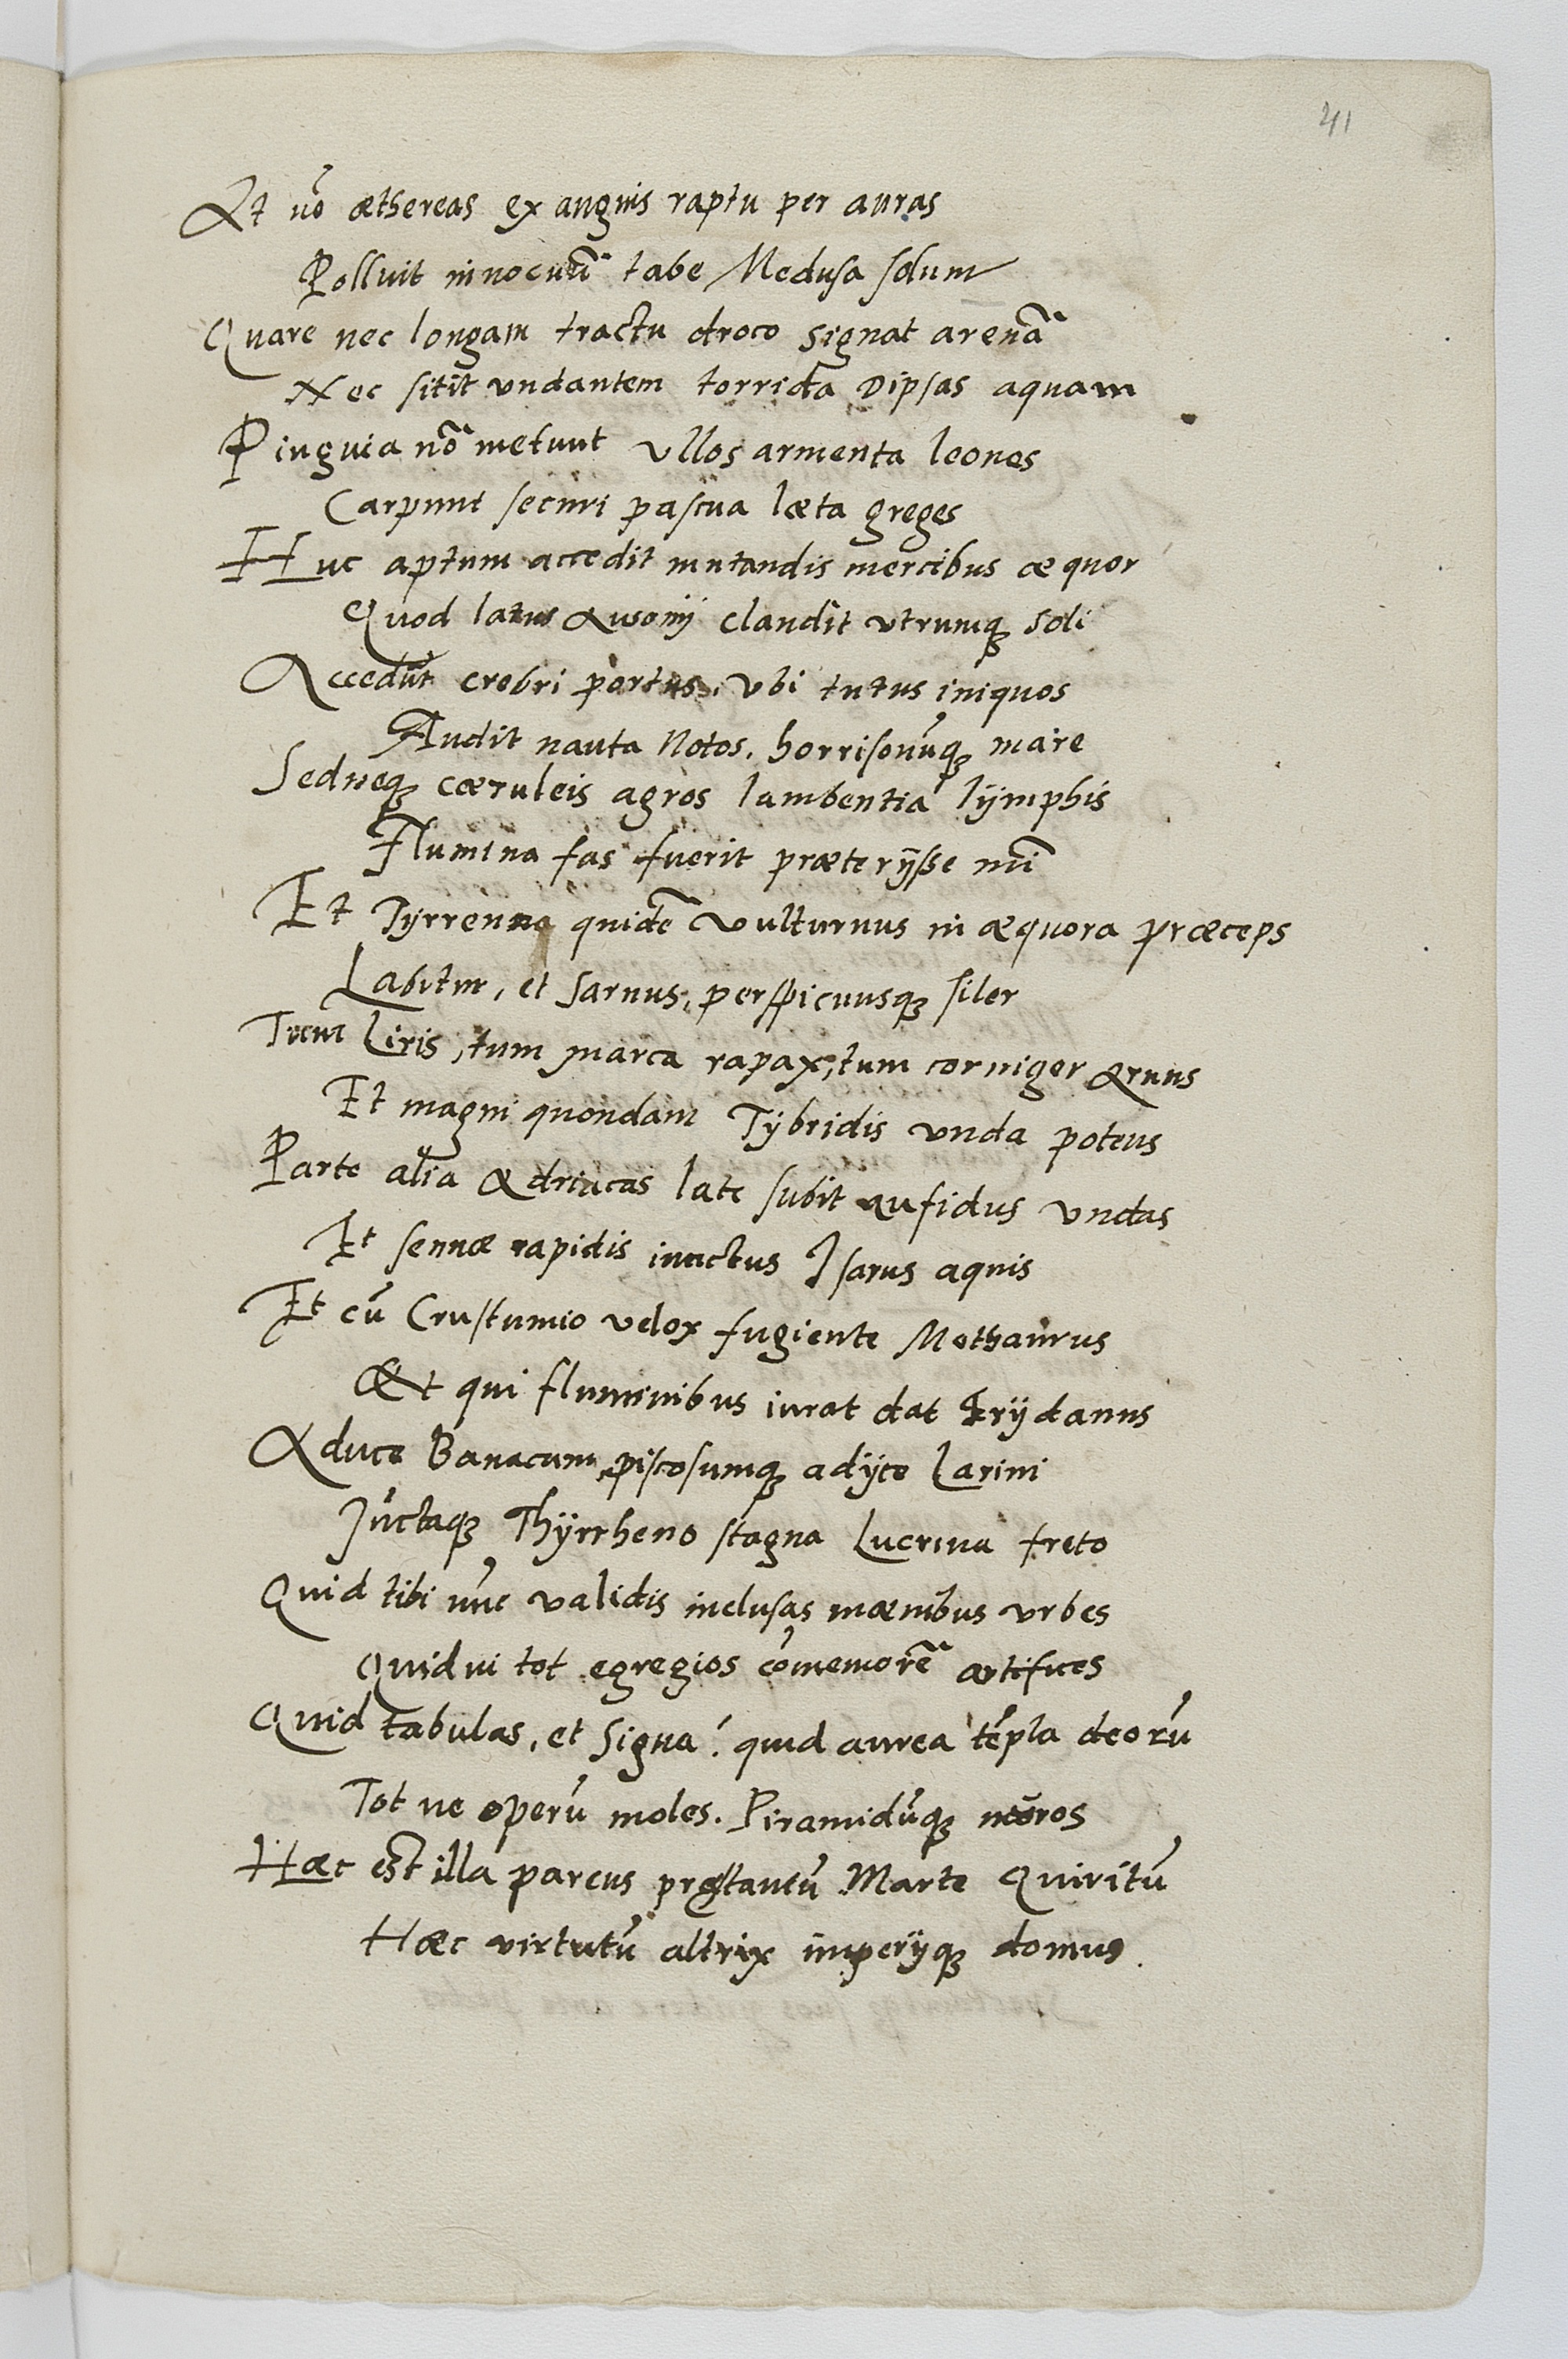 41
At nõ æthereas ex anguis raptu per auras
Polluit innocuũ tabe Medusa solum
Quare nec longam tractu droco signat arenã
Nec sitit undantem torrida Dipsas aquam
Pinguia nõ metunt ullos armenta leones
Carpunt securi pascua læta greges
Huc aptum accedit mutandis mercibus æquor
Quod latus Ausonij claudit utrumq; soli
Accedũt crebri portus. ubi tutus iniquos
Audit nauta Notos. horrisonũq; mare
Sedneq; cæruleis agros lambentia lÿmphis
Flumina fas fuerit præterÿsse mĩ
Et Tÿrrenna quidẽ vulturnus in æquora præceps
Labitur, et Sarnus, perspicuusq; siler
Tum Liris, tum marca rapax, tum corniger Arnus
Et magni quondam Tÿbridis unda potens
Parte alia Adriacas late subit aufidus undas
Et sennæ rapidis inactus Isarus aquis
Et cũ Crustumio velox fugiente Methaurus
Et qui fluminibus iurat dat Erÿdanus
Aduce Banacum, piscosumq; adÿce Larini
Iũctaq; Thÿrrheno stagna Lucrina freto
Quid tibi nũc validis inclusas mœnibus urbes
Quidui tot egregios cõmemorẽ artifices
Quid tabulas, et signa! quid aurea tẽpla deorũ
Tot ne operũ moles. Piramidũq; muros
Hæc est illa parcus pręstantũ Marte Quiritũ
Hæc virtutũ altrix imperÿq; domus.